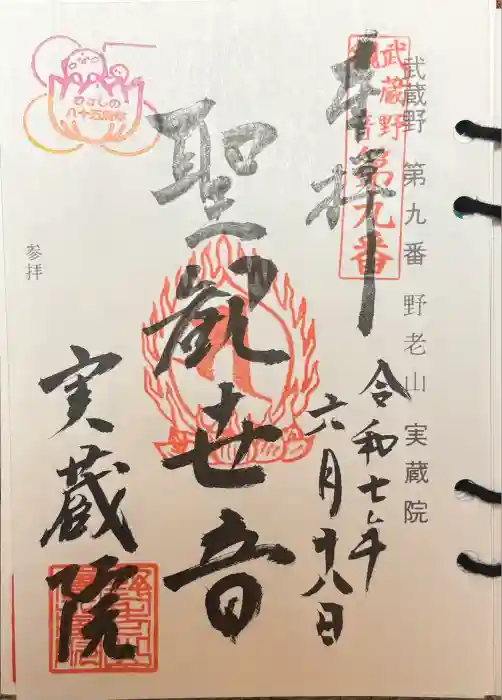 武蔵野 第九番 野老山 実蔵院
武蔵野
観音
第九番
奉拝
令和七年
六月十八日
聖観世音
実蔵院
むさしの
八十五周年
参拝